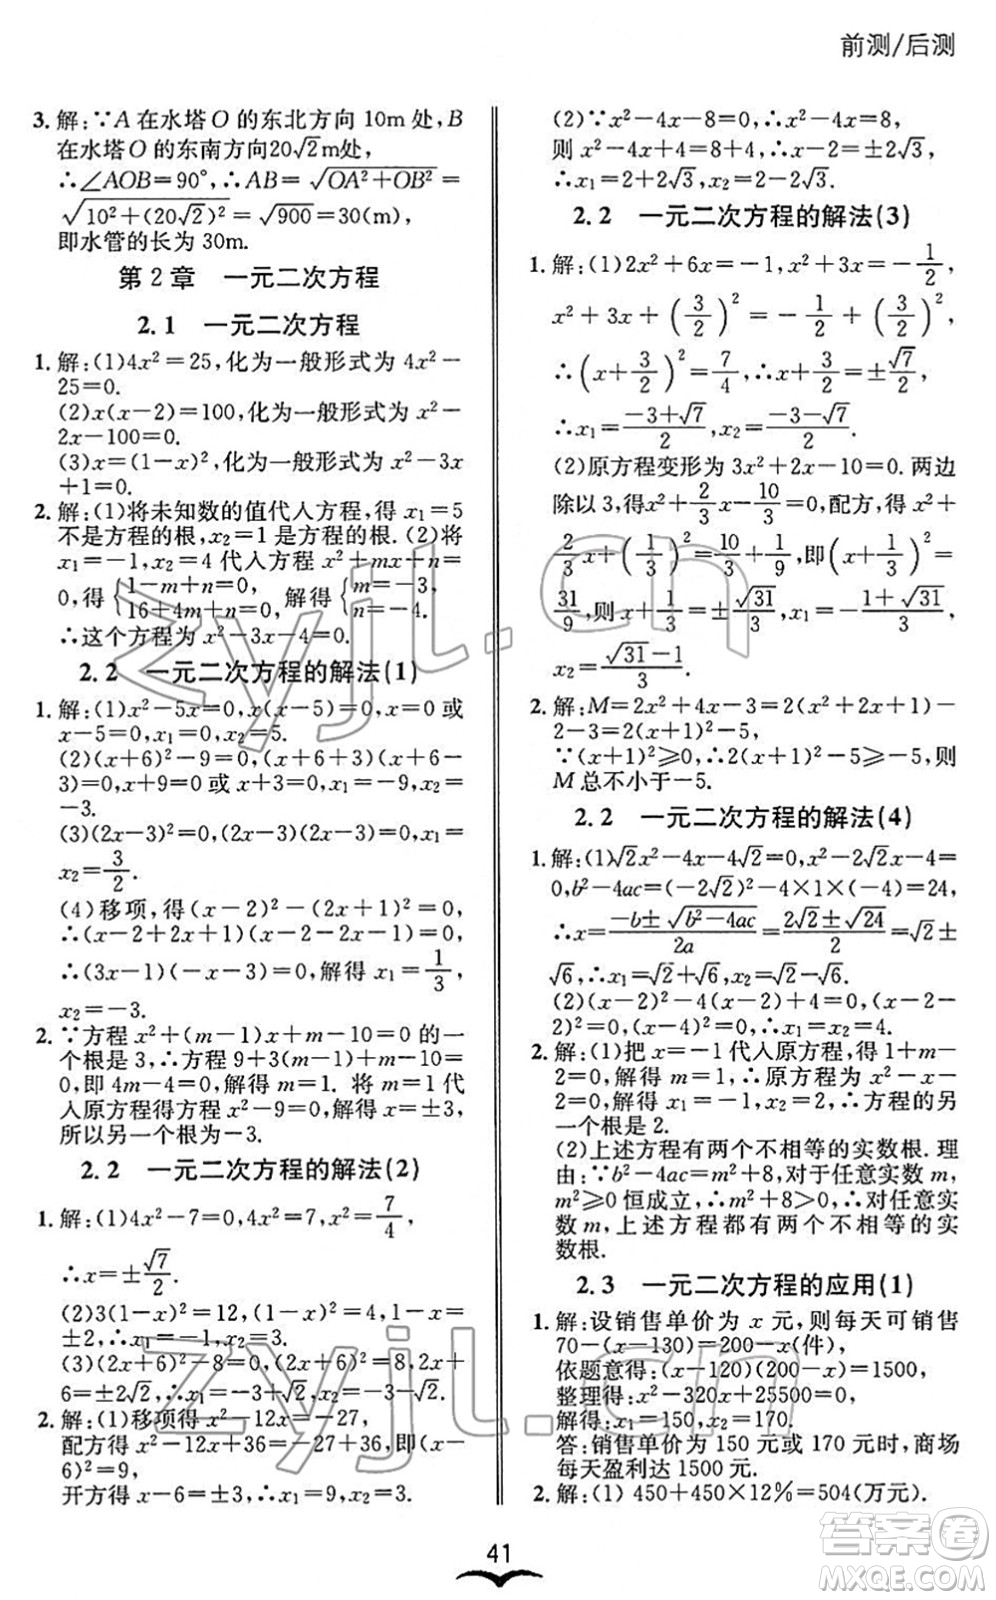 前测/后测
3. 解:∵A 在水塔 O 的东北方向 10m 处,B
在水塔O的东南方向20√2m处,
∴∠AOB=90°,∴AB=√(OA²+OB²)=
√(10²+(20√2)²)=√900=30(m),
即水管的长为 30m.
第 2 章 一元二次方程
2.1 一元二次方程
1. 解:(1)4x²=25,化为一般形式为 4x²-
25=0.
(2)x(x-2)=100,化为一般形式为 x²-
2x-100=0.
(3)x=(1-x)²,化为一般形式为 x²-3x
+1=0.
2. 解:(1)将未知数的值代人方程,得 x₁=5
不是方程的根,x₂=1是方程的根.(2)将
x₁=-1,x₂=4 代人方程 x²+mx+n=
0,得 {1-m+n=0, 16+4m+n=0, 解得 {m=-3, n=-4.
∴这个方程为 x²-3x-4=0.
2.2 一元二次方程的解法(1)
1. 解:(1)x²-5x=0,x(x-5)=0,x=0 或
x-5=0,x₁=0,x₂=5.
(2)(x+6)²-9=0,(x+6+3)(x+6-
3)=0,x+9=0 或 x+3=0,x₁=-9,
x₂=-3.
(3)(2x-3)²=0,(2x-3)=0,x₁=
x₂=3/2.
(4)移项,得(x-2)²-(2x+1)²=0,
∴(x-2+2x+1)(x-2-2x-1)=0,
∴(3x-1)(-x-3)=0,解得 x₁=1/3,
x₂=-3.
2. ∵方程 x²+(m-1)x+m-10=0 的一
个根是 3,∴方程 9+3(m-1)+m-10=
0,即 4m-4=0,解得 m=1. 将 m=1 代
人原方程得方程 x²-9=0,解得 x=±3,
所以另一个根为-3.
2.2 一元二次方程的解法(2)
1. 解:(1)4x²-7=0,4x²=7,x²=7/4,
∴x=±√7/2.
(2)3(1-x)²=12,(1-x)²=4,1-x=
±2,∴x₁=-1,x₂=3.
(3)(2x+6)²-8=0,(2x+6)²=8,2x+
6=±2√2,∴x₁=-3+√2,x₂=-3-√2.
2. 解:(1)移项得 x²-12x=-27,
配方得 x²-12x+36=-27+36,即(x-
6)²=9,
开方得 x-6=±3,∴x₁=9,x₂=3.
(2)∵x²-4x-8=0,∴x²-4x=8,
则 x²-4x+4=8+4,∴x-2=±2√3,
∴x₁=2+2√3,x₂=2-2√3.
2.2 一元二次方程的解法(3)
1. 解:(1)2x²+6x=-1,x²+3x=-1/2,
x²+3x+(3/2)²=-1/2+(3/2)²,
∴(x+3/2)²=7/4,∴x+3/2=±√7/2,
∴x₁=(-3+√7)/2,x₂=(-3-√7)/2.
(2)原方程变形为 3x²+2x-10=0. 两边
除以 3,得x²+2/3x-10/3=0,配方,得 x²+
2/3x+(1/3)²=10/3+1/9,即(x+1/3)²=
31/9,则 x+1/3=±√31/3,x₁=-(1+√31)/3,
x₂=(√31-1)/3.
2. 解:M=2x²+4x-3=2(x²+2x+1)-
2-3=2(x+1)²-5,
∵(x+1)²≥0,∴2(x+1)²-5≥-5,则
M 总不小于-5.
2.2 一元二次方程的解法(4)
1. 解:(1)√2x²-4x-4√2=0,x²-2√2x-4=
0,b²-4ac=(-2√2)²-4×1×(-4)=24,
∴x=(-b±√(b²-4ac))/2a=(2√2±√24)/2=√2±
√6,∴x₁=√2+√6,x₂=√2-√6.
(2)(x-2)²-4(x-2)+4=0,(x-2-
2)²=0,(x-4)²=0,∴x₁=x₂=4.
2. 解:(1)把 x=-1代人原方程,得 1+m-
2=0,解得 m=1,∴原方程为 x²-x-
2=0,解得 x₁=-1,x₂=2,∴方程的另
一个根是 2.
(2)上述方程有两个不相等的实数根. 理
由:∵b²-4ac=m²+8,对于任意实数 m,
m²≥0 恒成立,∴m²+8>0,∴对任意实
数 m,上述方程都有两个不相等的实
数根.
2.3 一元二次方程的应用(1)
1. 解:设销售单价为 x 元,则每天可销售
70-(x-130)=200-x(件),
依题意得:(x-120)(200-x)=1500,
整理得:x²-320x+25500=0,
解得:x₁=150,x₂=170.
答:销售单价为 150 元或 170 元时,商场
每天盈利达 1500 元.
2. 解:(1) 450+450×12%=504(万元).
41
zyjl.cn
zyjl.cn
答案卷
MXQE.COM